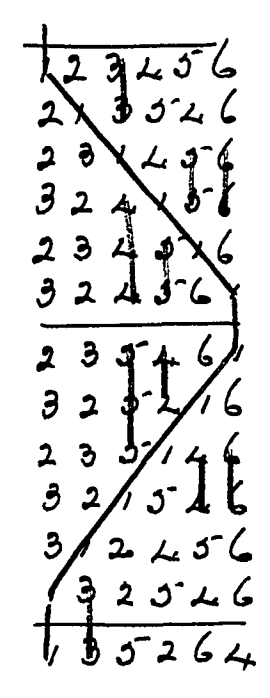 1 2 3 4 5 6
2 1 3 5 4 6
2 3 1 4 5 6
3 2 4 1 5 6
2 3 4 5 1 6
3 2 4 5 6 1
2 3 5 4 6 1
3 2 5 4 1 6
2 3 5 1 4 6
3 2 1 5 4 6
3 1 2 4 5 6
1 3 2 5 4 6
1 3 5 2 6 4